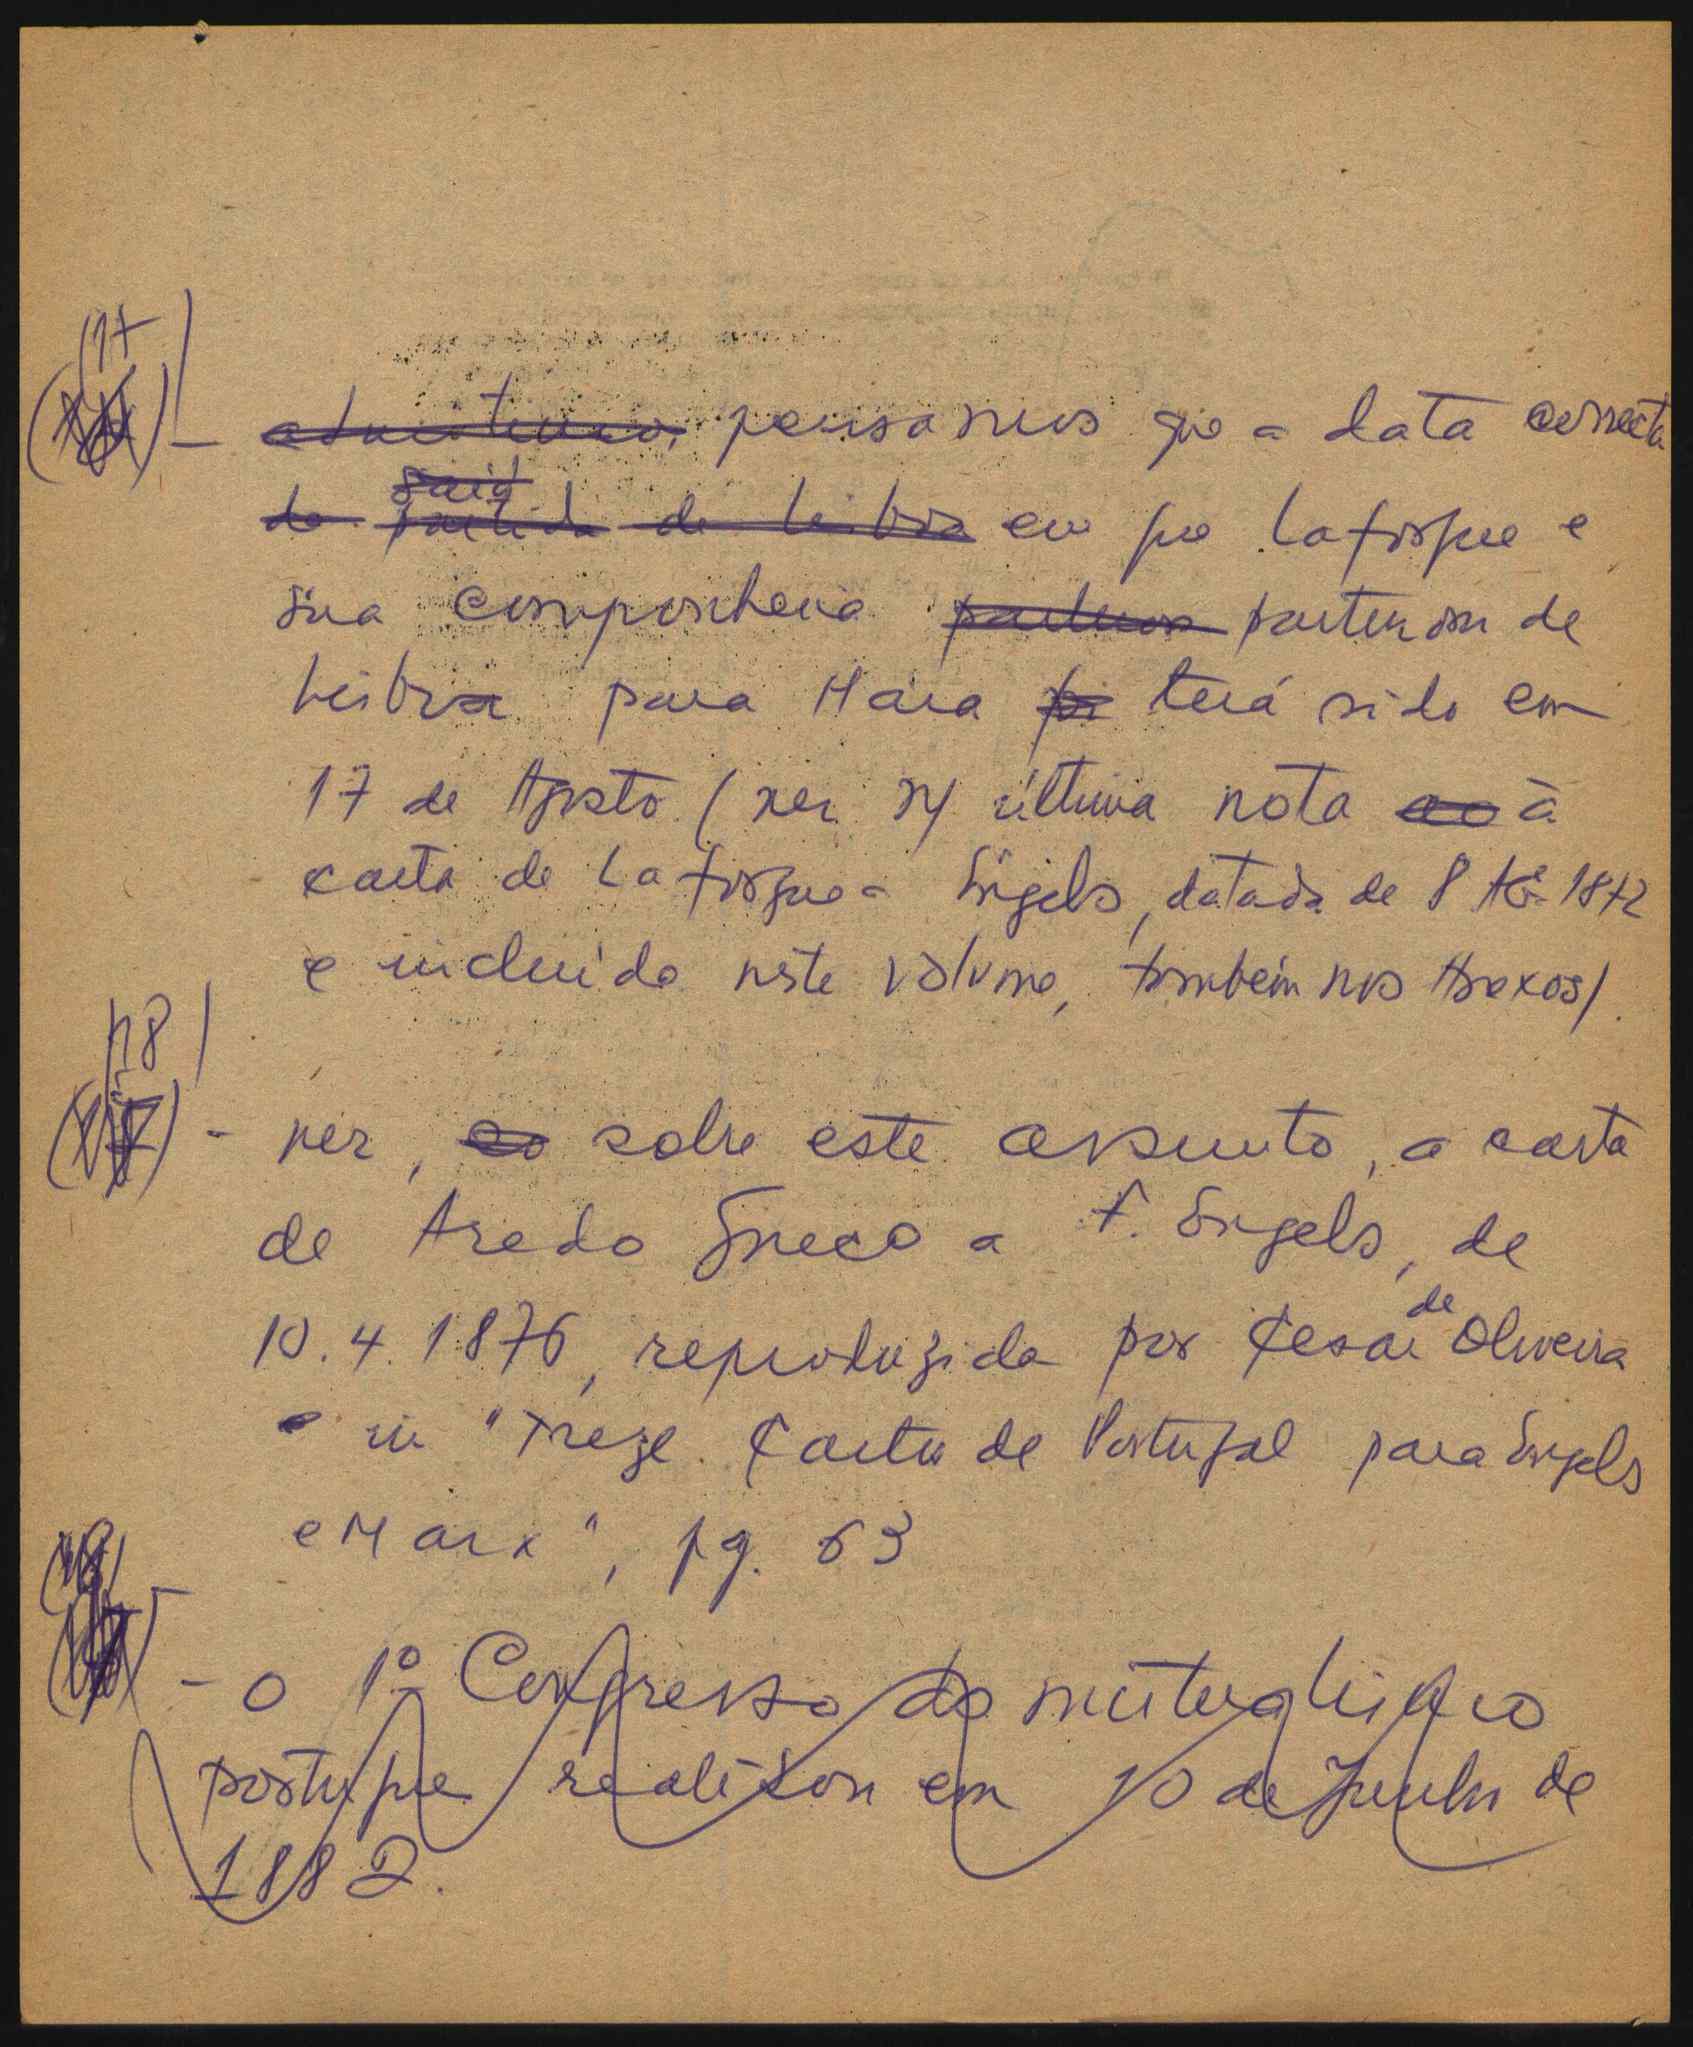 17) - pensamos que a data correcta
da partida de Lisboa em que Lafargue e
sua companheira partiram de
Lisboa para Haia foi terá sido em
17 de Agosto (ver N/ última nota ao à
carta de Lafargue a Engels, datada de 8 Ag. 1872
e incluída neste volume, também nos Anexos).
18) - ver, sobre este assunto, a carta
de Azedo Gneco a F. Engels, de
10.4.1876, reproduzida por Cesar de Oliveira
in "Treze Cartas de Portugal para Engels
e Marx", pg. 63
- o 1º Congresso do mutualismo
portugue realizou em 10 de Junho de
1882.